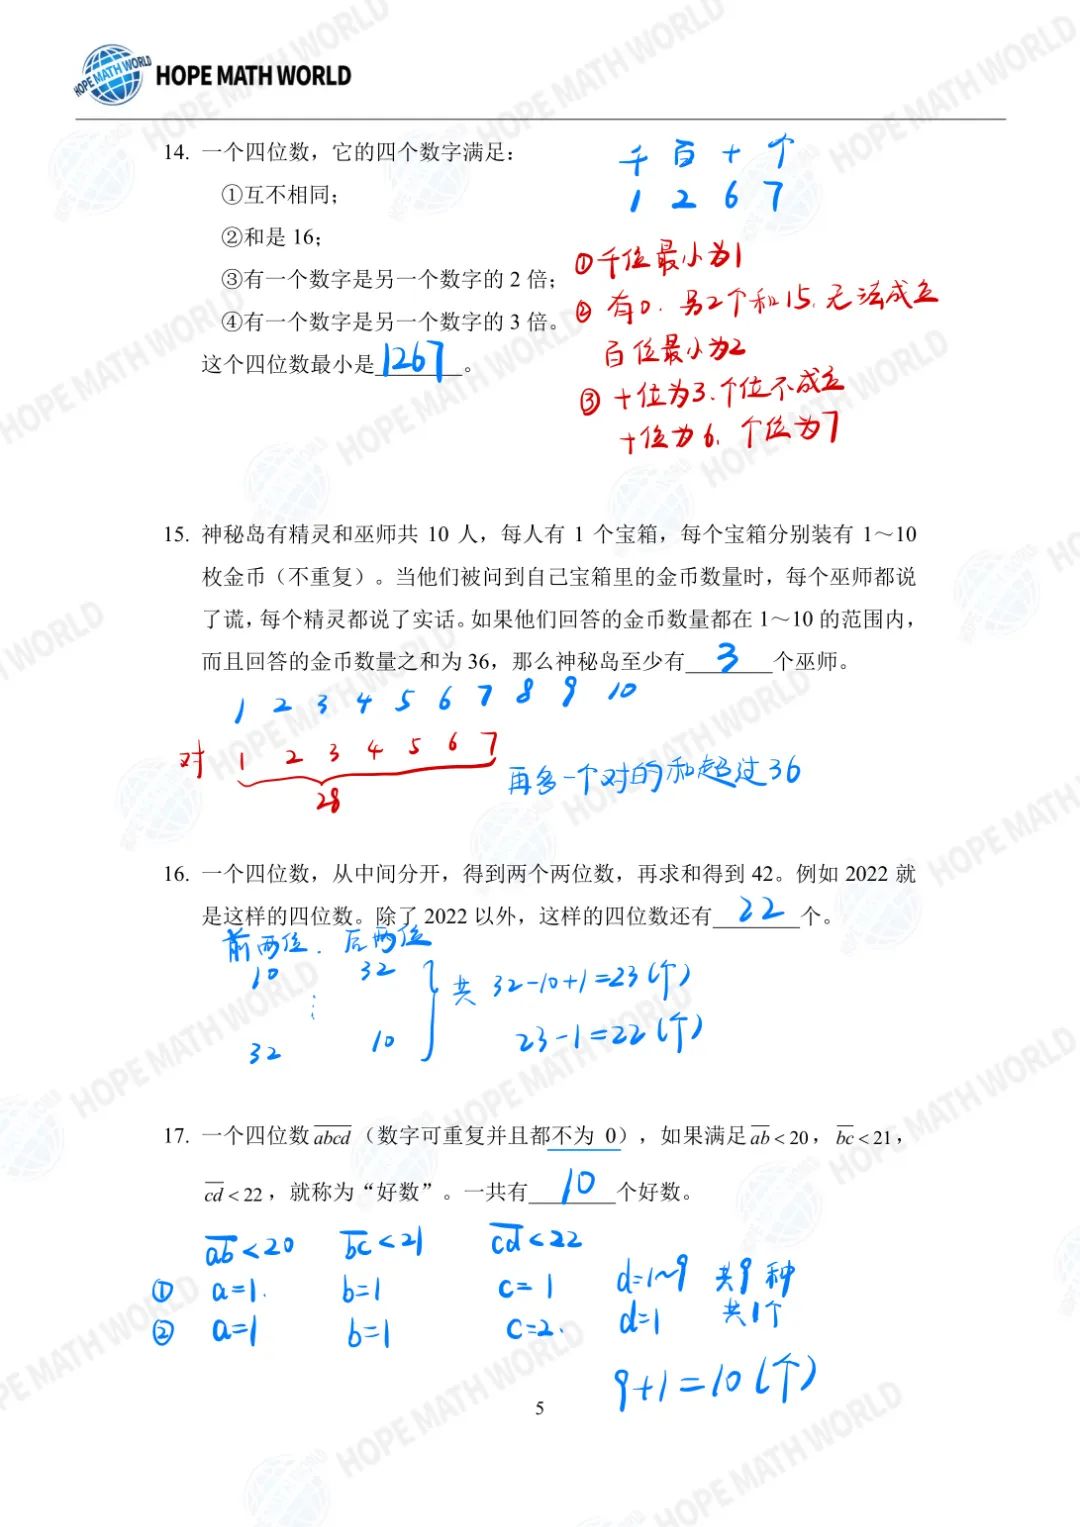 HOPE MATH WORLD
14. 一个四位数，它的四个数字满足：
①互不相同；
②和是 16；
③有一个数字是另一个数字的 2 倍；
④有一个数字是另一个数字的 3 倍。
这个四位数最小是1267。
千 百 十 个
1 2 6 7
①千位最小为1
② 有0. 另2个和15. 无法成立
百位最小为2
③ 十位为3、个位不成立
十位为6. 个位为7
15. 神秘岛有精灵和巫师共 10 人，每人有 1 个宝箱，每个宝箱分别装有 1～10
枚金币（不重复）。当他们被问到自己宝箱里的金币数量时，每个巫师都说
了谎，每个精灵都说了实话。如果他们回答的金币数量都在 1～10 的范围内，
而且回答的金币数量之和为 36，那么神秘岛至少有 3 个巫师。
1 2 3 4 5 6 7 8 9 10
对 1 2 3 4 5 6 7
28
再多一个对的和超过36
16. 一个四位数，从中间分开，得到两个两位数，再求和得到 42。例如 2022 就
是这样的四位数。除了 2022 以外，这样的四位数还有 22 个。
前两位. 后两位
10 32
32 10
共 32-10+1=23(个)
23-1=22(个)
17. 一个四位数 abcd（数字可重复并且都不为 0），如果满足 ab < 20，bc < 21，
cd < 22，就称为“好数”。一共有 10 个好数。
ab<20 bc<21 cd<22
① a=1. b=1 c=1 d=1~9 共9种
② a=1 b=1 c=2. d=1 共1个
9+1=10(个)
5